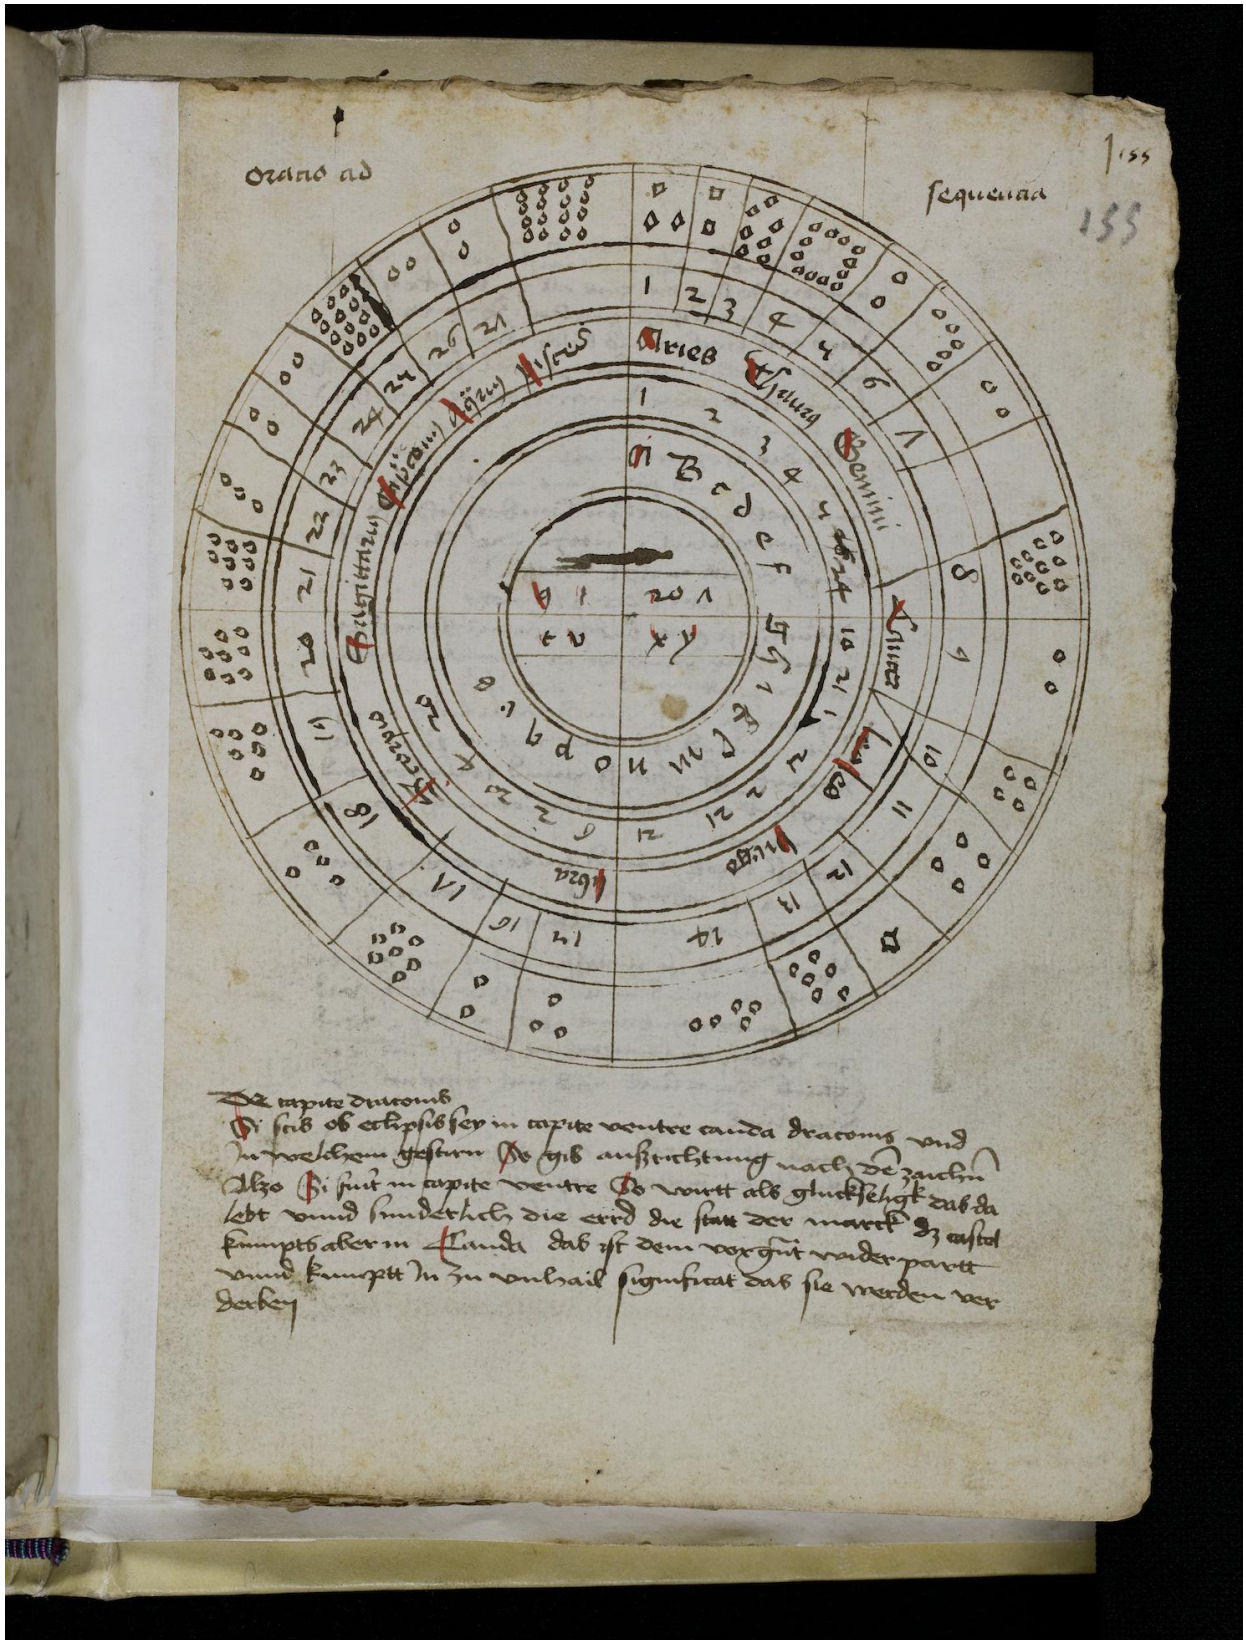 oratio ad
sequencia
155
155
1 2 3 4 5 6 7 8 9 10 11 12 13 14 15 16 17 18 19 20 21 22 23 24 25 26 27
Aries Thaurus Gemini Cancer Leo Virgo Libra Scorpio Sagittarius Pisces
1 2 3 4 5
A B c d e f g h i k l m n o p q
De capite draconis
Si scis ob eclipsis sey in capite ventre cauda draconis vnd
In welchem gestirn So gib auszrichtung nach dē zaichn
Alzo Si fuit in capite ventre So wirtt als gluckseligk das da
lebt vnnd sunderlich die errd die statt der marck dz castel
kumpts aber in Cauda das ist dem vorgūt wider partt
vnnd kumptt In zu vnhail significat das sie werden ver
derben